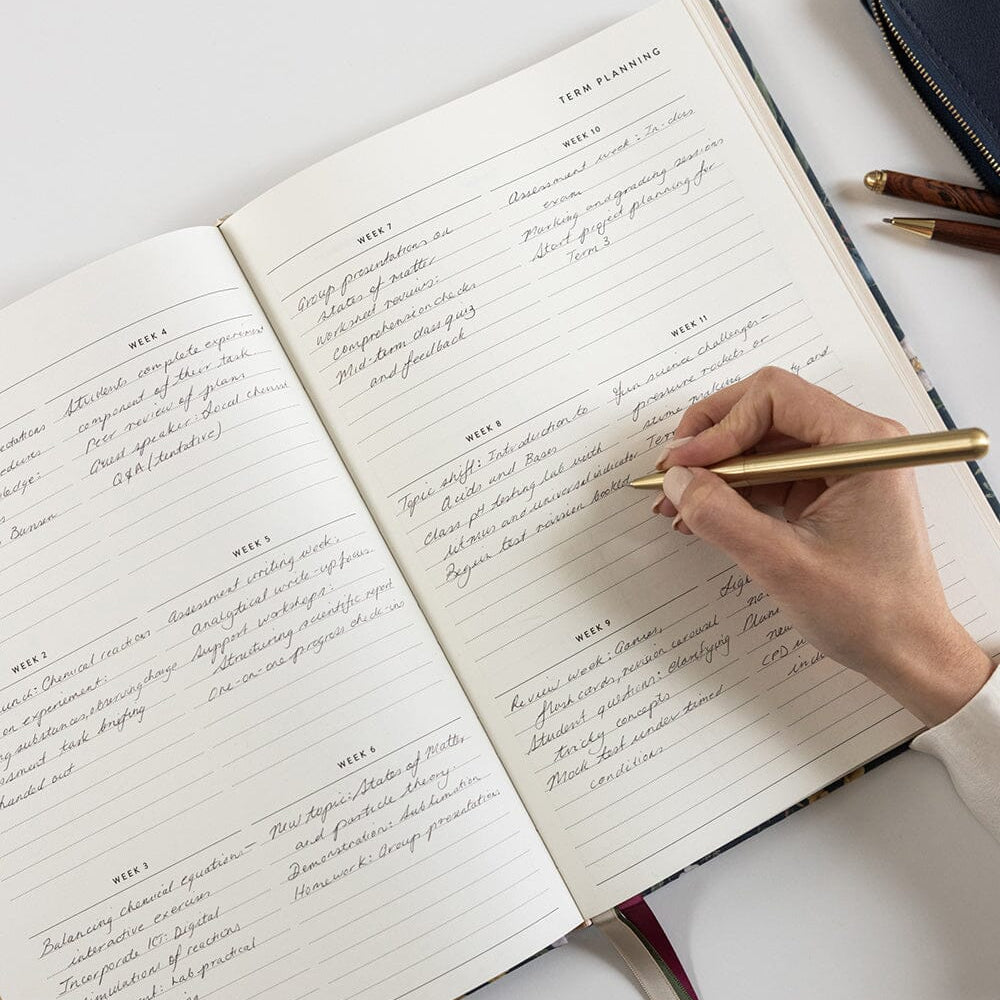 WEEK 2
Chemical reactions
on experiement:
substances, observing change
task briefing
handed out
WEEK 3
Balancing chemical equation-
interactive exercises
Incorporate ICT: Digital
simulations of reactions
Lab practical
WEEK 4
Students complete experiment
component of their task
Peer review of plans
Guest speaker: Local chemist
Q&A (tentative)
WEEK 5
Assessment writing week,
analytical write-up focus.
Support workshops:
Structuring scientific report
One-on-one progress check-ins
WEEK 6
New topic: States of Matter
and particle theory.
Demonstration: Sublimation
Homework: Group presentation
TERM PLANNING
WEEK 7
Group presentations on
states of matter
worksheet reviews:
comprehension checks
Mid-term class quiz
and feedback
WEEK 8
Topic shift: Introduction to
Acids and Bases
Class pH testing lab with
litmus and universal indicator
Begin test revision booklet
WEEK 9
Review week: Games,
flash cards, revision carousel
Student questions: clarifying
tricky concepts
Mock test under timed
conditions
WEEK 10
Assessment week: In-class
exam
Marking and grading sessions
Start project planning for
Term 3
WEEK 11
Fun science challenges-
pressure rockets or
slime making